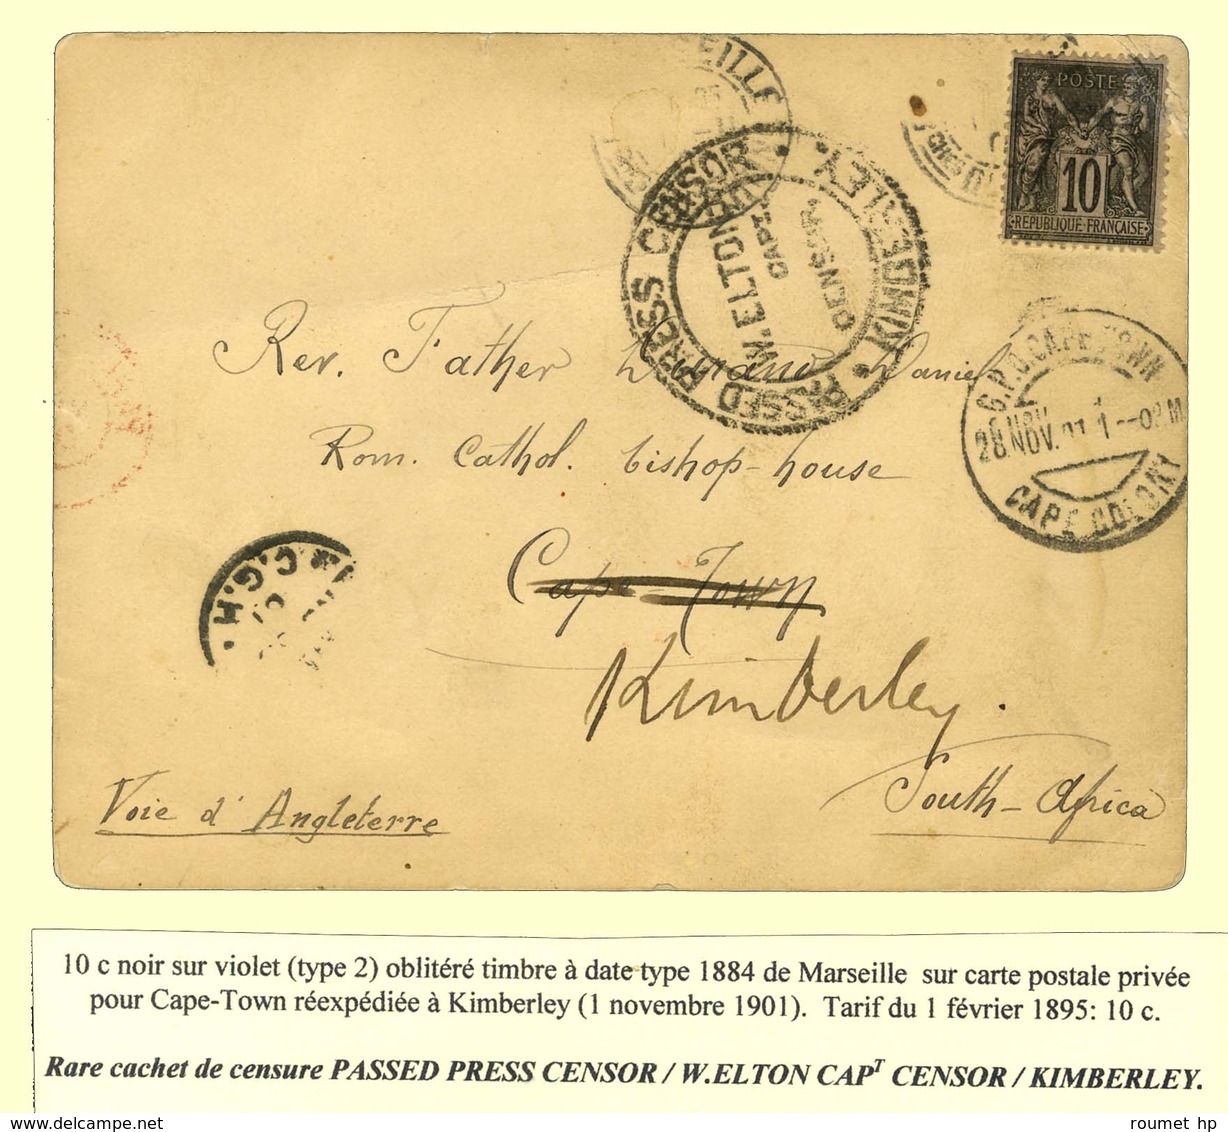 EILLE
POSTE
10
RÉPUBLIQUE FRANÇAISE
PASSED PRESS CENSOR
W. ELTON
CAPT.
CENSOR.
KIMBERLEY.
G.P.O. CAPE TOWN
28 NOV. 01 1--0PM
CAPE COLONY
Rev. Father Daniel
Rom. Cathol. bishop-house
Cape Town
Kimberley.
C.G.H.
Voie d'Angleterre
South-Africa
10 c noir sur violet (type 2) oblitéré timbre à date type 1884 de Marseille sur carte postale privée
pour Cape-Town réexpédiée à Kimberley (1 novembre 1901). Tarif du 1 février 1895: 10 c.
Rare cachet de censure PASSED PRESS CENSOR / W.ELTON CAPT CENSOR / KIMBERLEY.
roumet hp
www.delcampe.net